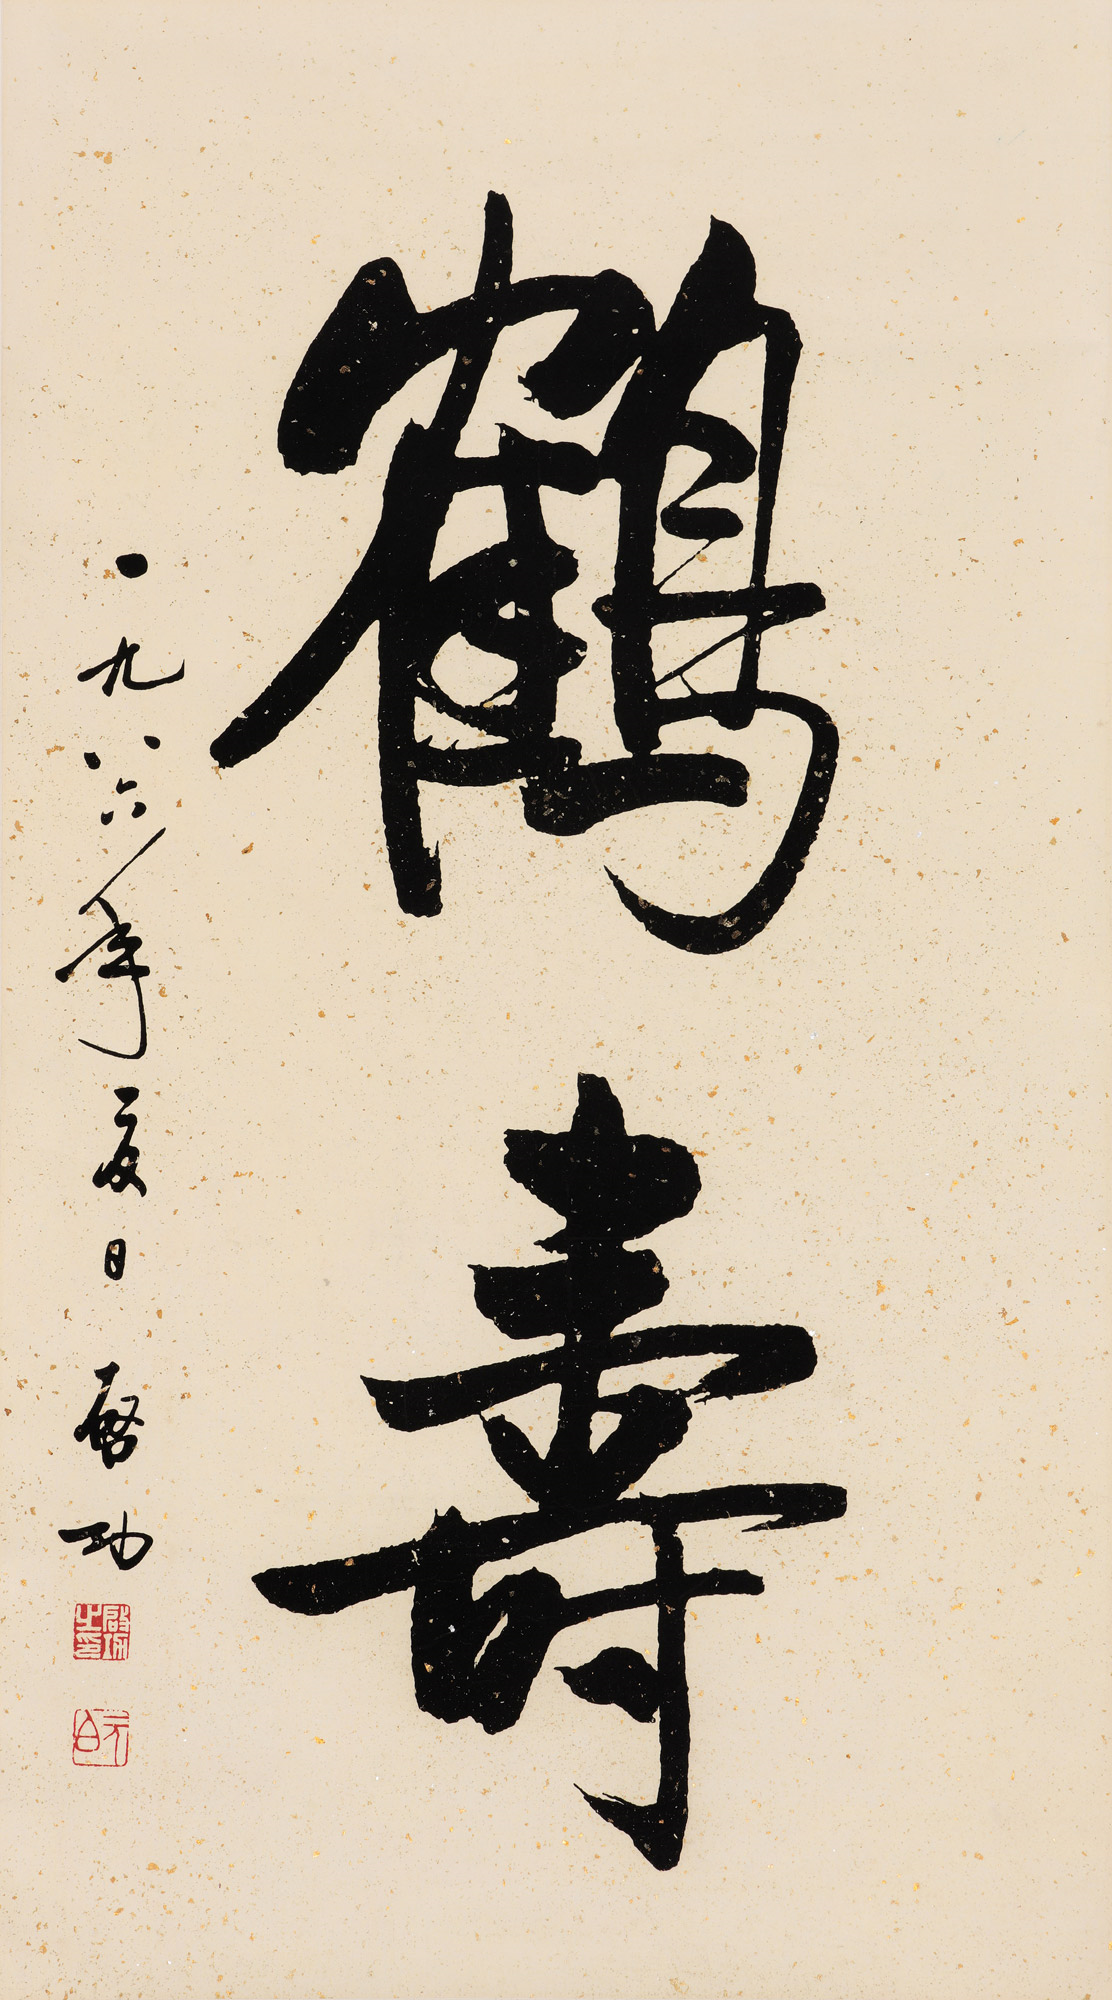 鶴壽
一九八六年夏日 啓功
啟功之印
元白